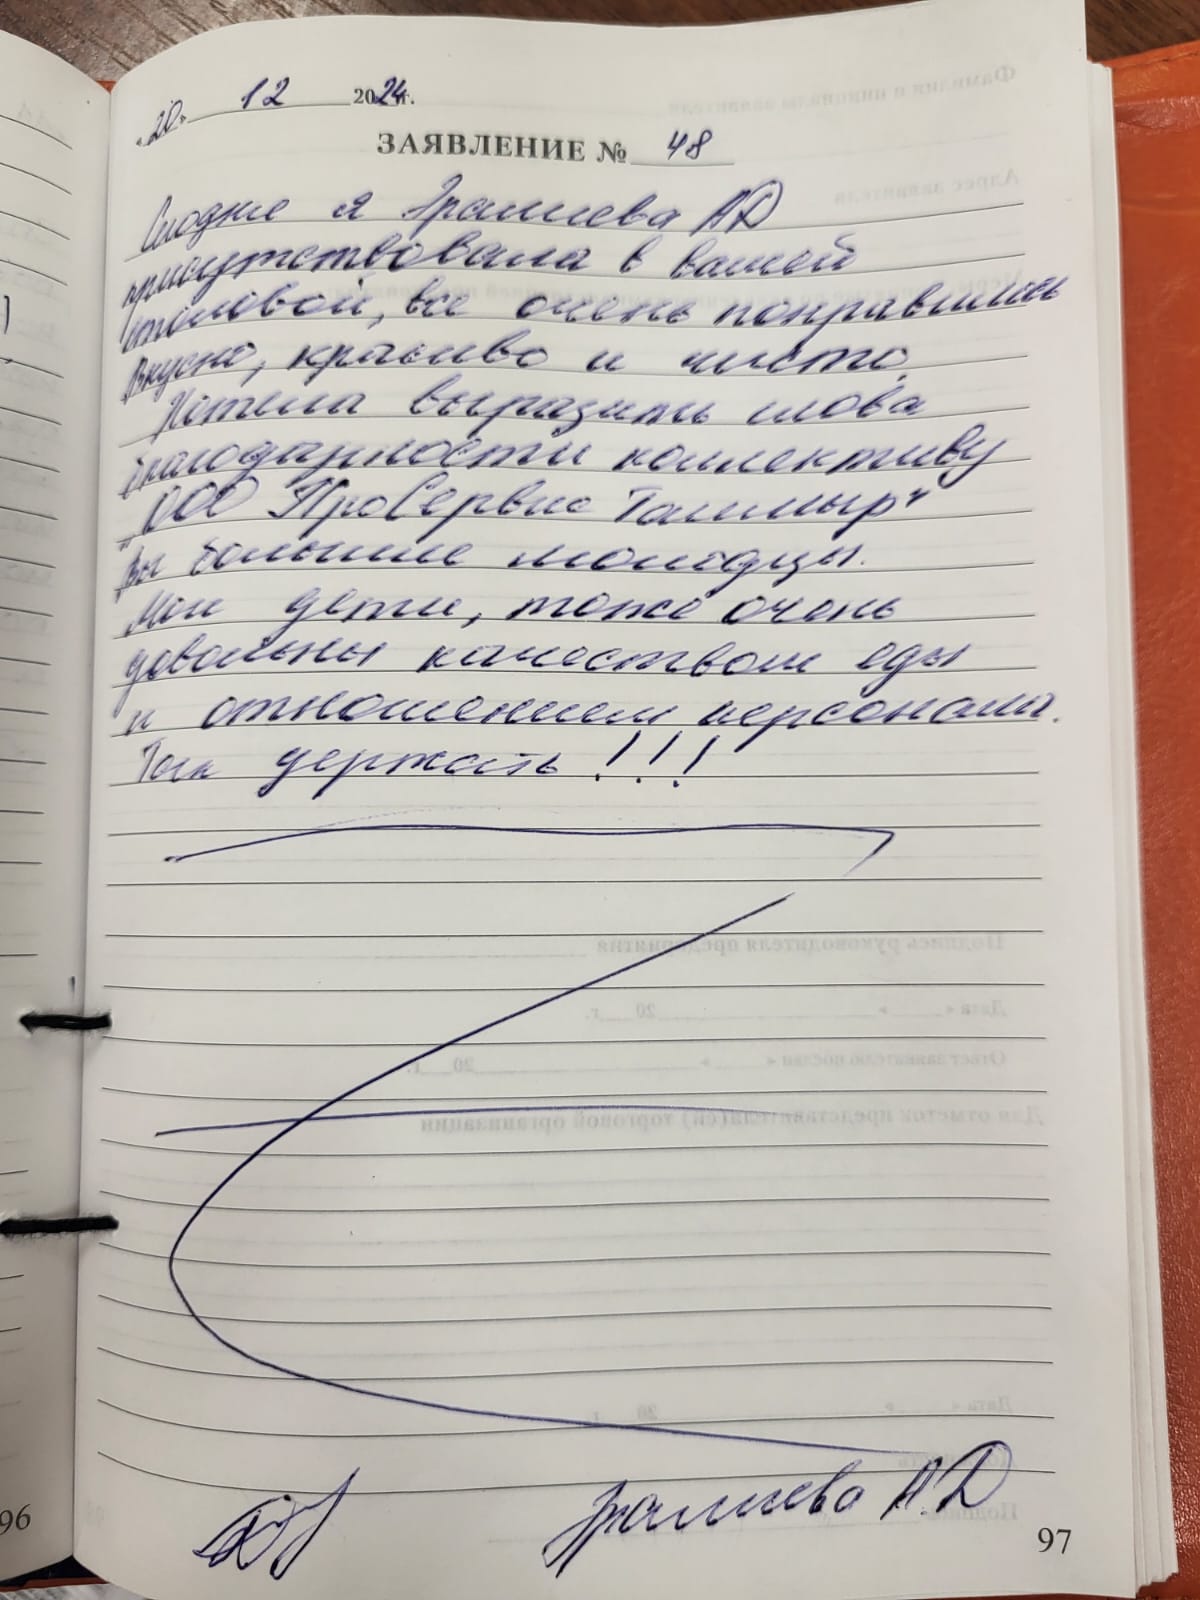 «20» 12 2024г.
ЗАЯВЛЕНИЕ № 48
Сегодня я АД
присутствовала в вашей
столовой, все очень понравилось
Вкусно, красиво и чисто.
Хотела выразить слова
благодарности коллективу
"ООО ПроСервис Таймыр"
Вы большие молодцы.
Мои дети, тоже очень
довольны качеством еды
и отношением персонала.
Так держать!!!
А.Д
96
97